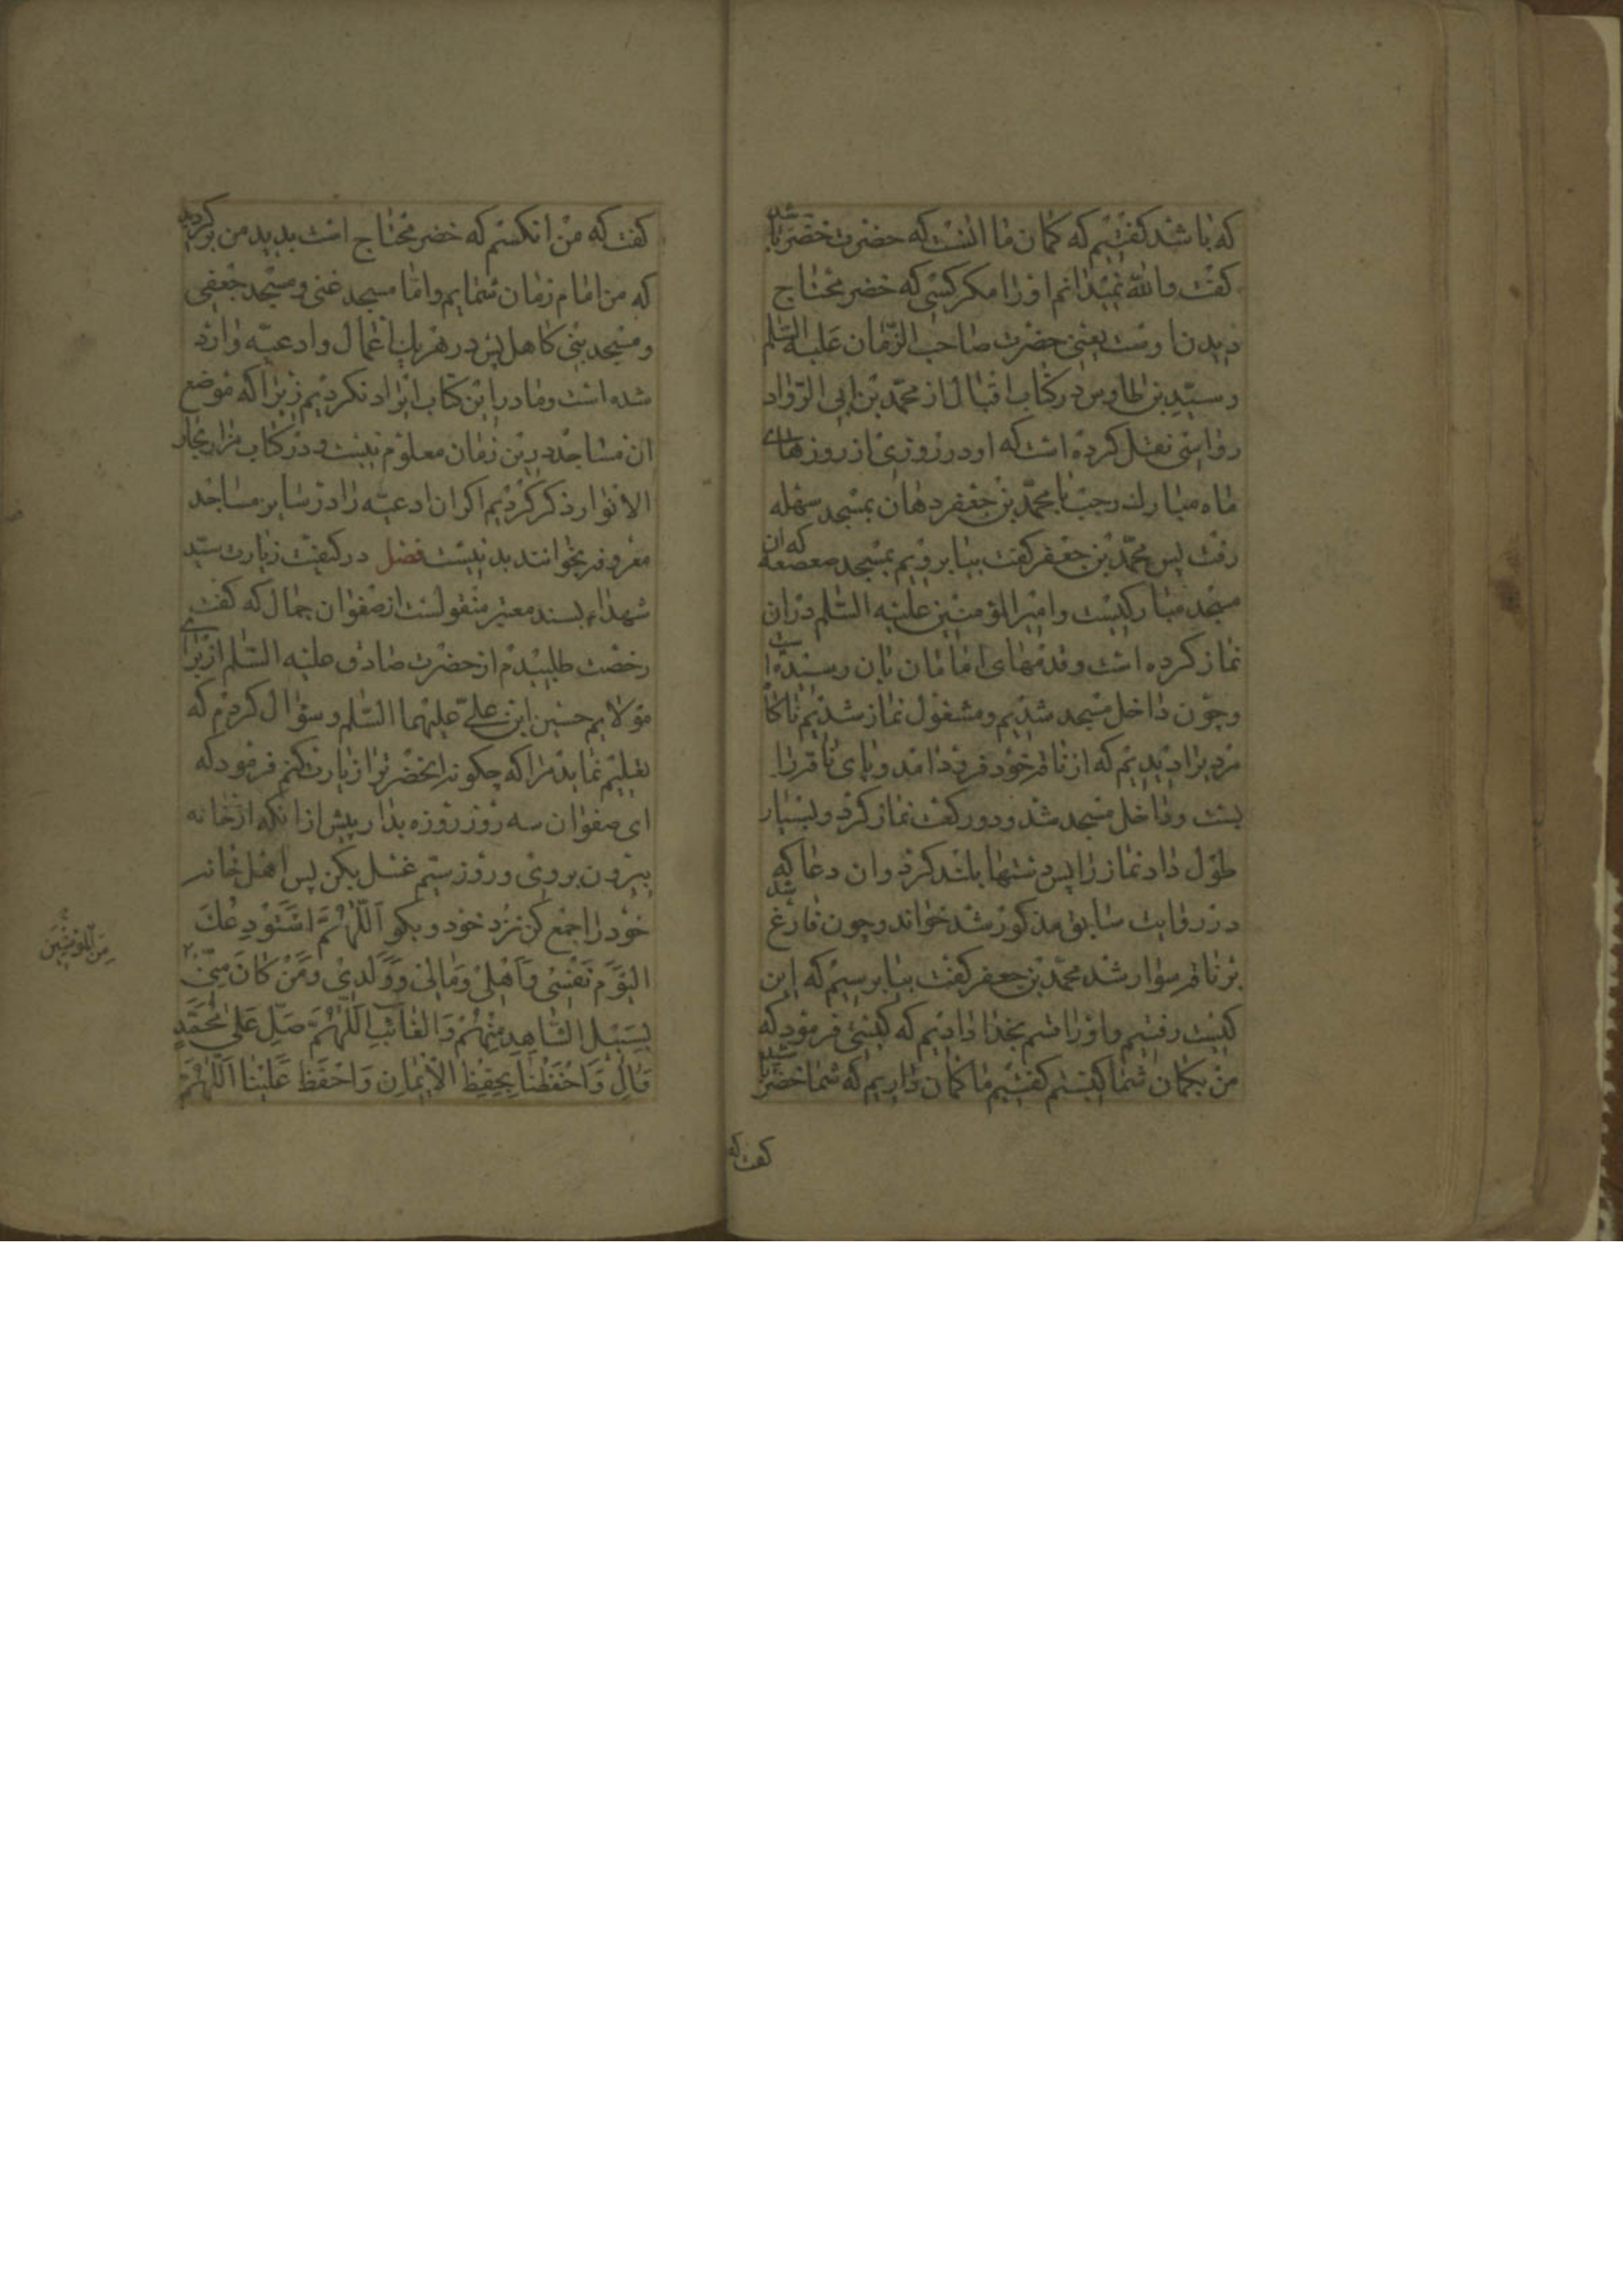 که باشد کفتیم که کمان ما انست که حضرت خضر باشد
کفت والله نمیدانم اورا مکر کسی که خضر محتاج
دیدن اوست یعنی حضرت صاحب الزمان علیه السلم
و سید بن طاوس در کتاب اقبال از محمد بن ابی الرواد
روایتی نقل کرده است که او در روزی از روزهای
ماه مبارک رجب با محمد بن جعفر دهان بمسجد سهله
رفت پس محمد بن جعفر کفت بیا برویم بمسجد صعصعه که ان
مسجد مبارکیست و امیر المؤمنین علیه السلم دران
نماز کرده است و قدمهای امامان بان رسیده است
و چون داخل مسجد شدیم و مشغول نماز شدیم ناکاه
مردیرا دیدیم که از ناقه خود فرود امد و پای ناقه را
بست و داخل مسجد شد و دو رکعت نماز کرد و بسیار
طول داد نماز را پس دستها بلند کرد و ان دعا که
در روایت سابق مذکور شد خواند و چون فارغ شد
بر ناقه سوار شد محمد بن جعفر کفت بیا برسیم که این
کیست رفتیم و اورا قسم بخدا دادیم که کیستی فرمود که
من بکمان شما کیستم کفتیم ما کمان داریم که شما خضر باشید
کفت که
کفت که من انکسم که خضر محتاج است بدیدن من برکردید
که من امام زمان شمایم واما مسجد غنی و مسجد جعفی
و مسجد بنی کاهل پس در هریک اعمال و ادعیه وارد
شده است و ما در این کتاب ایراد نکردیم زیرا که موضع
ان مساجد درین زمان معلوم نیست و در کتاب مزار بحار
الانوار ذکر کردیم اکر ان ادعیه را در سایر مساجد
معروفه بخوانند بد نیست فصل در کیفیت زیارت سید
شهداء بسند معتبر منقولست از صفوان جمال که کفت
رخصت طلبیدم از حضرت صادق علیه السلم از برای
مولایم حسین ابن علی علیهما السلم و سؤال کردم که
تعلیم نماید مرا که چکونه انحضرترا زیارت کنم فرمود که
ای صفوان سه روز روزه بدار پیش ازانکه ازخانه
بیرون بروی و روز سیم غسل بکن پس اهل خانه
خود را جمع کن نزد خود و بکو اَللّٰهُمَّ اَسْتَوْدِعُكَ
الْيَوْمَ نَفْسِى وَاَهْلِى وَمَالِى وَوَلَدِى وَمَنْ كَانَ مِنِّى
بِسَبِيْلِ الشَّاهِدِ مِنْهُمْ وَالْغَائِبِ اَللّٰهُمَّ صَلِّ عَلٰى مُحَمَّدٍ
وَاٰلِ وَاحْفَظْنَا بِحِفْظِ الْاِيْمَانِ وَاحْفَظْ عَلَيْنَا اَللّٰهُمَّ
مِنَ الْمُؤْمِنِيْنَ